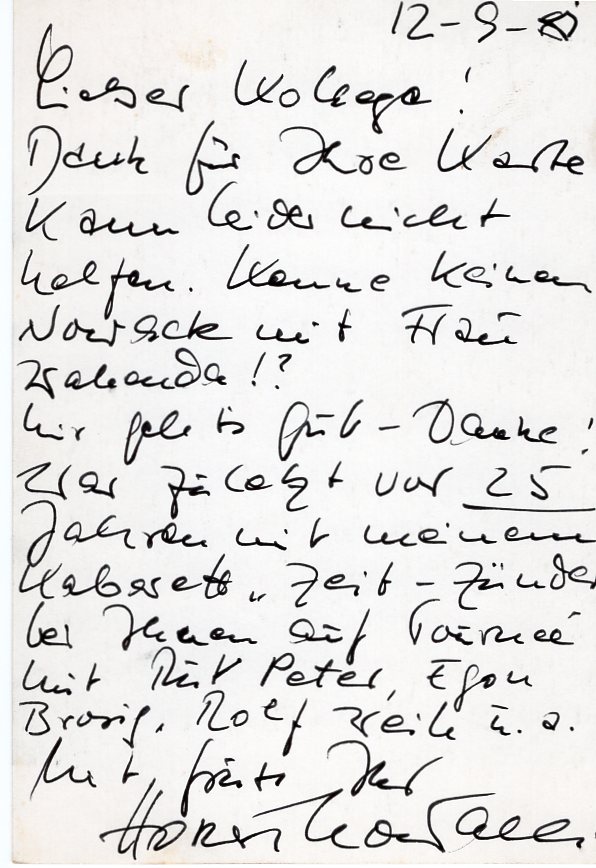 12-9-
Lieber Kollege!
Dank für Ihre Karte
Kann leider nicht
helfen. Kenne keinen
Nowack mit Frau
Wahanda!?
Mir geht's gut – Danke!
War zuletzt vor 25
Jahren mit meinem
Kabarett „Zeit-Zünder
bei Ihnen auf Tournee
mit Rut Peter, Egon
Brosig, Rolf Weih u. a.
Mit Grüß Ihr
Horst